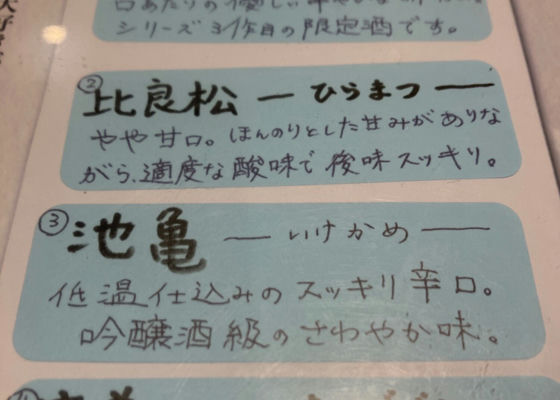 口あたりの優しい
シリーズ3作目の限定酒です。
② 比良松 ー ひらまつ ー
やや甘口。ほんのりとした甘みがありな
がら、適度な酸味で後味スッキリ。
③ 池亀 ー いけかめ ー
低温仕込みのスッキリ辛口。
吟醸酒級のさわやか味。
④